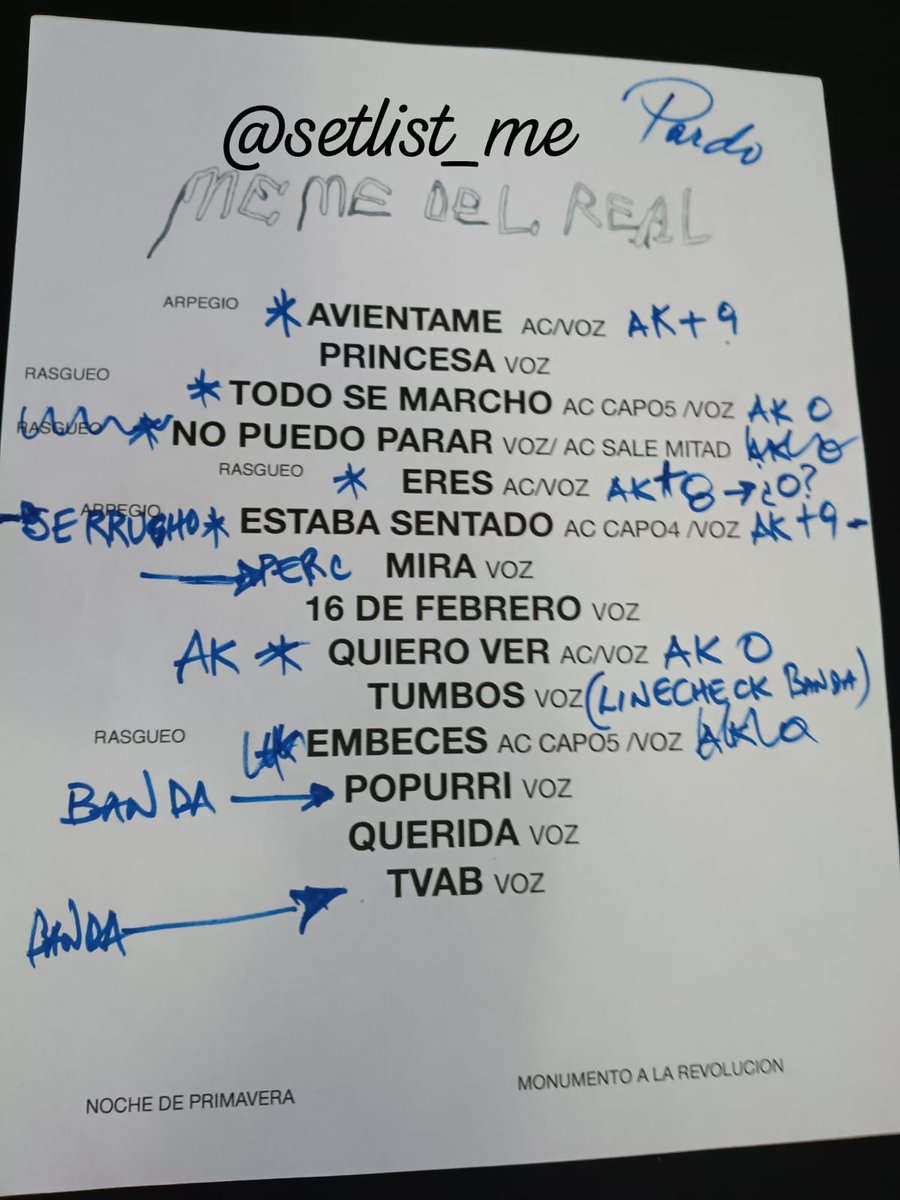 @setlist_me
Pardo
MEME DEL REAL
ARPEGIO * AVIENTAME AC/VOZ AK+9
PRINCESA VOZ
RASGUEO * TODO SE MARCHO AC CAPO5 /VOZ AK 0
RASGUEO * NO PUEDO PARAR VOZ/ AC SALE MITAD
RASGUEO * ERES AC/VOZ AK+8 → ¿0?
ARPEGIO
SERRUCHO * ESTABA SENTADO AC CAPO4 /VOZ AK +9 -
→ PERC MIRA VOZ
16 DE FEBRERO VOZ
AK * QUIERO VER AC/VOZ AK 0
TUMBOS VOZ (LINECHECK BANDA)
RASGUEO EMBECES AC CAPO5 /VOZ
BANDA → POPURRI VOZ
QUERIDA VOZ
TVAB VOZ
BANDA →
NOCHE DE PRIMAVERA
MONUMENTO A LA REVOLUCION